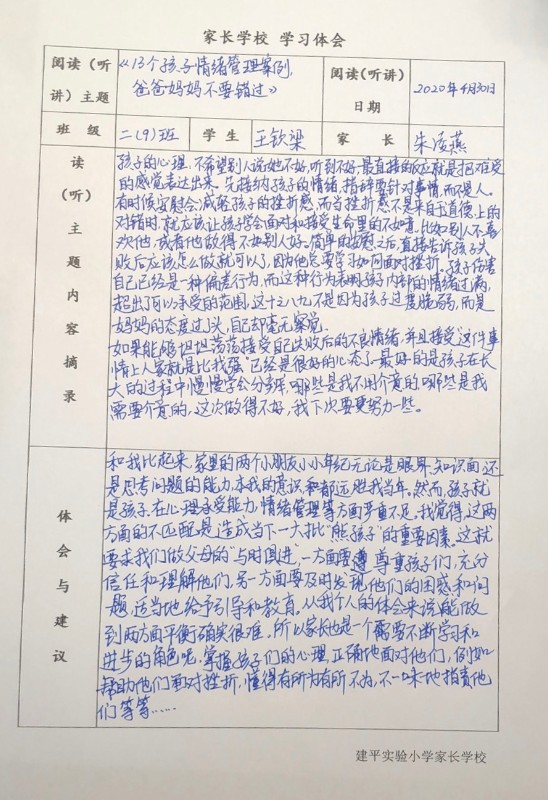 家长学校 学习体会
阅读（听讲）主题
《13个孩子情绪管理案例，
爸爸妈妈不要错过》
阅读（听讲）日期
2020年4月30日
班 级
二（9）班
学 生
王钦梁
家 长
朱凌燕
读（听）主题内容摘录
孩子的心理，不希望别人说她不好，听到不好，最直接的反应就是把难受
的感觉表达出来。先接纳孩子的情绪，措辞要针对事情，而不是人。
有时候安慰会减轻孩子的挫折感，而当挫折感不是来自于道德上的
对错时，就应该让孩子学会面对和接受生命里的不如意。比如别人不喜
欢他，或者他做得不如别人好。简单的安慰之后，直接告诉孩子失
败后应该怎么做就可以了，因为他总要学习如何面对挫折。孩子伤害
自己已经是一种偏差行为，而这种行为表明孩子内部的情绪过满，
超出了可以承受的范围，这十之八九不是因为孩子过度脆弱，而是
妈妈的态度过了头，自己却毫无察觉。
如果能够坦坦荡荡接受自己失败后的不良情绪，并且接受“这件事
情上人家就是比我强”已经是很好的心态了，最好的是孩子在长
大的过程中慢慢学会分辨，哪些是我不用介意的，哪些是我
需要介意的，这次做得不好，我下次要更努力一些。
体会与建议
和我比起来，家里的两个小朋友小小年纪无论是眼界、知识面，还
是思考问题的能力、自我的意识，都远胜我当年。然而，孩子就
是孩子，在心理承受能力、情绪管理等方面严重不足，我觉得，这两
方面的不匹配是造成当下一大批“熊孩子”的重要因素。这就
要求我们做父母的“与时俱进”，一方面要遵尊重孩子们，充分
信任和理解他们，另一方面要及时发现他们的困惑和问
题，适当地给予引导和教育，从我个人的体会来说，能做
到两方面平衡确实很难。所以家长也是一个需要不断学习和
进步的角色呢，掌握孩子们的心理，正确地面对他们，例如
帮助他们面对挫折，懂得有所为有所不为，不一味地指责他
们等等……
建平实验小学家长学校